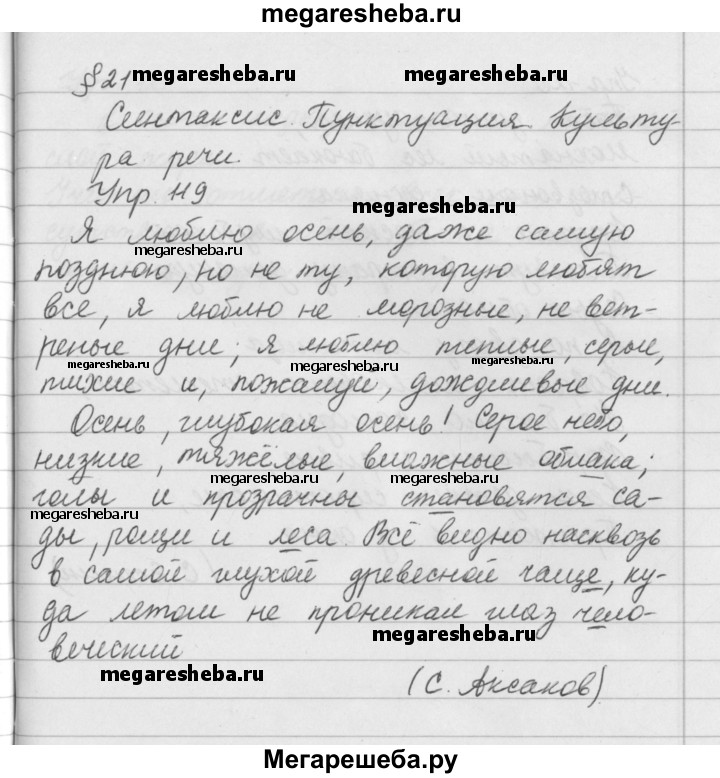 megaresheba.ru
§ 21
megaresheba.ru
Синтаксис. Пунктуация. Культу-
ра речи.
Упр. 119
megaresheba.ru
Я люблю осень, даже самую
megaresheba.ru
позднюю, но не ту, которую любят
все, я люблю не морозные, не вет-
реные дни; я люблю теплые, серые,
megaresheba.ru
megaresheba.ru
тихие и, пожалуй, дождливые дни.
Осень, глубокая осень! Серое небо,
низкие, тяжёлые, влажные облака;
megaresheba.ru
megaresheba.ru
голы и прозрачны становятся са-
megaresheba.ru
ды, рощи и леса. Всё видно насквозь
в самой глухой древесной чаще, ку-
да летом не проникал глаз чело-
megaresheba.ru
веческий
megaresheba.ru
(С. Аксаков).
Мегарешеба.ру